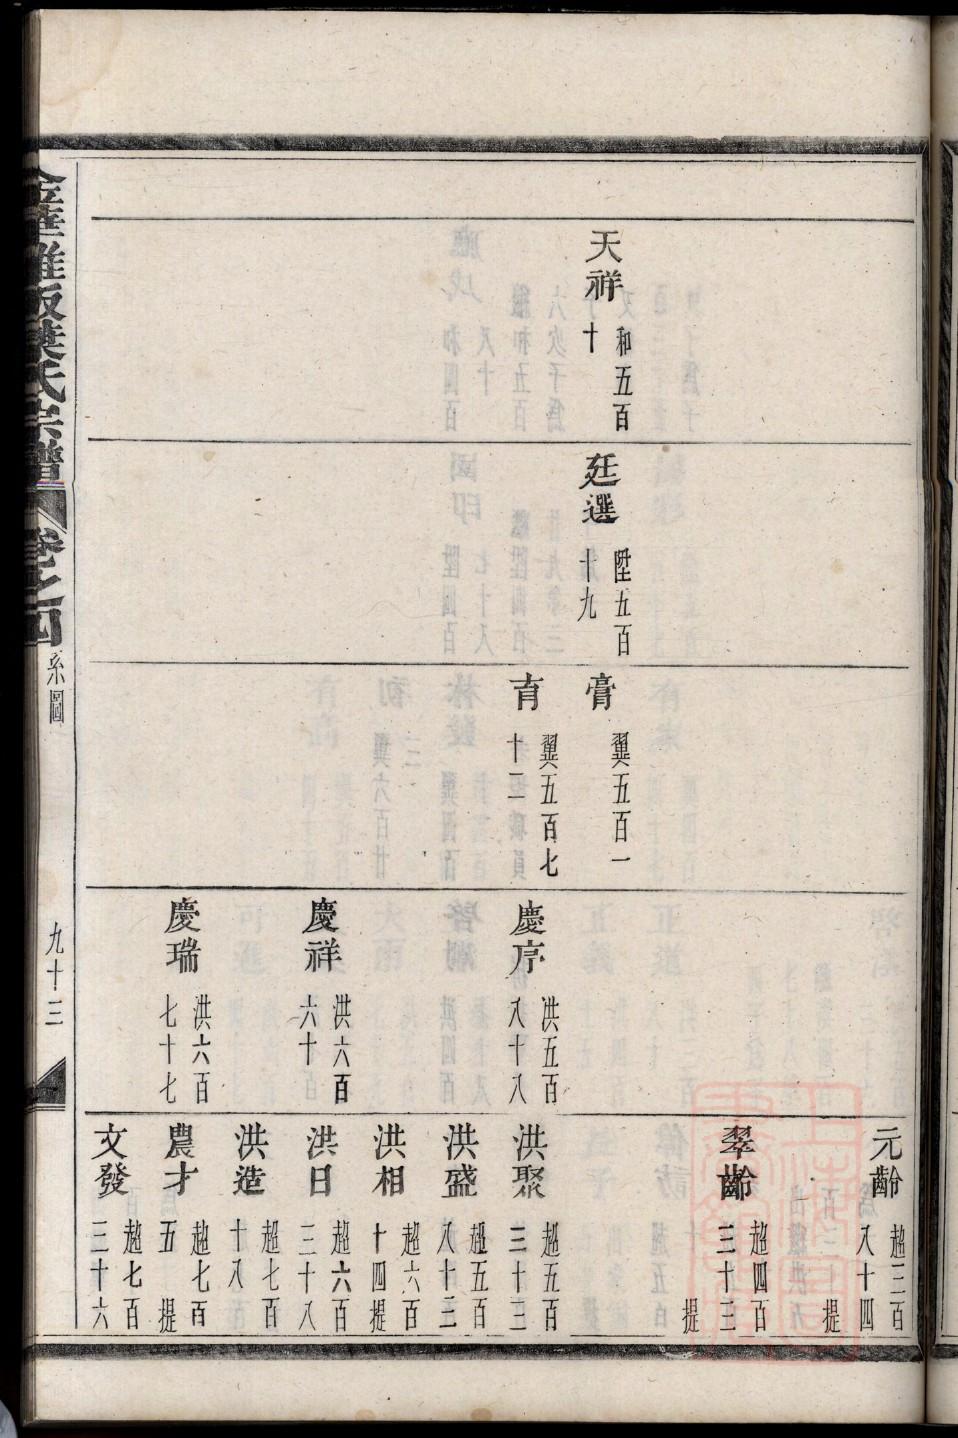 天祥 和五百十
廷選 陞五百十九
膏 翼五百一
育 翼五百七十二
慶序 洪五百八十八
慶祥 洪六百六十
慶瑞 洪六百七十七
元齡 超三百八十四 提
翠齡 超四百三十三 提
洪聚 超五百三十三
洪盛 超五百八十三
洪相 超六百十四提
洪日 超六百三十八
洪造 超七百十八
農才 超七百五 提
文發 超七百三十六
葉氏宗譜 卷之四 系圖 九十三